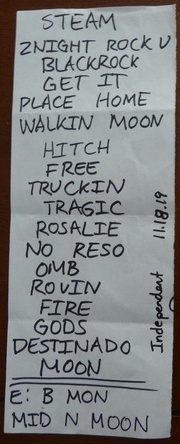 STEAM
2NIGHT ROCK U
BLACKROCK
GET IT
PLACE HOME
WALKIN MOON
HITCH
FREE
TRUCKIN
TRAGIC
ROSALIE
NO RESO
OMB
ROVIN
FIRE
GODS
DESTINADO
MOON
E: B MON
MID N MOON
Independent 11.18.19